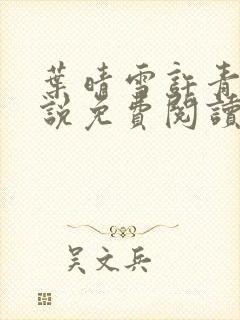 葉晴雪許青
說免費閱讀
吳文兵